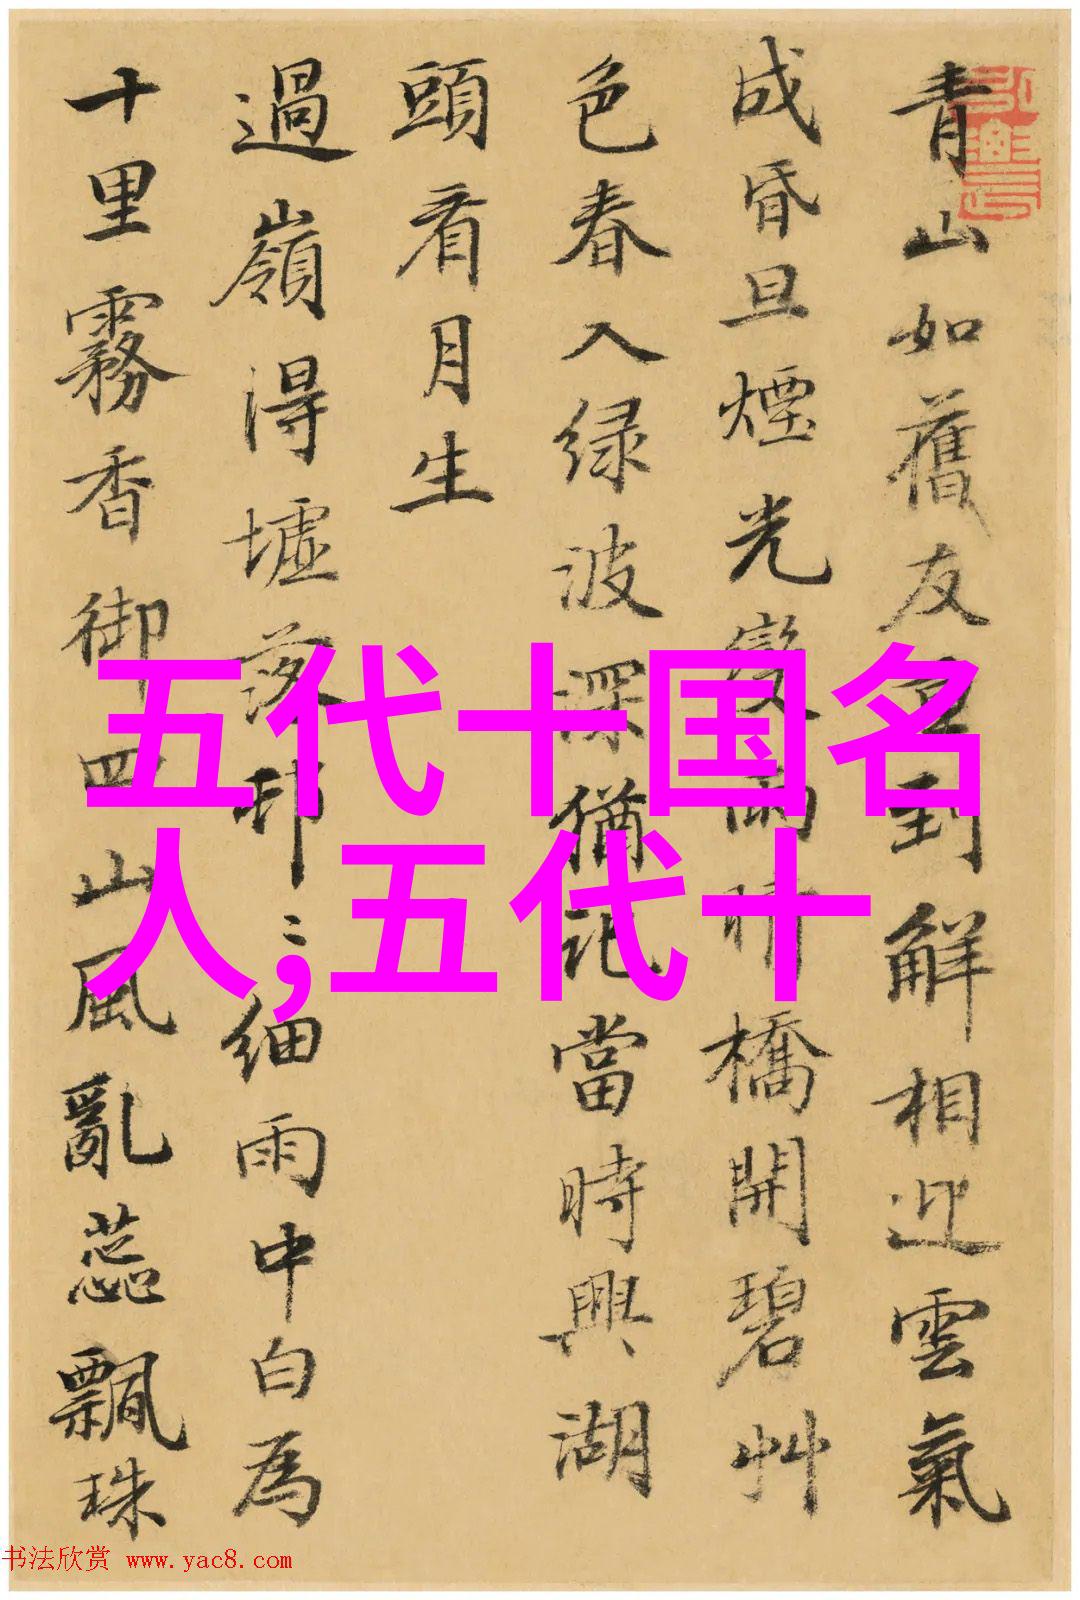 青山如舊友重到解相迎雲氣
成昏旦煙光變雨晴橋開碧艸
色春入绿波深猶記當時興湖
頭看月生
過嶺得墟落邨〻細雨中白為
十里霧香御四山風亂蕊飄珠
五代十国名
人;五代十
书法欣赏 www.yac8.com